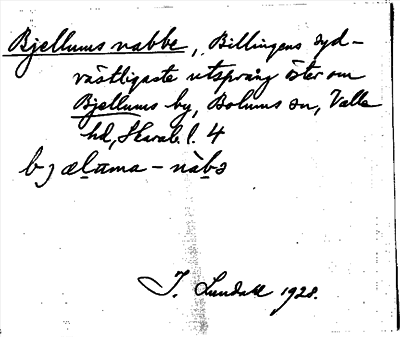 Bjellums nabbe, Billingens syd-
västligaste utsprång öster om
Bjellums by, Bolums sn, Valle
hd, Skarab. l. 4
bjæluma-nàbə
J. Lundahl 1928.